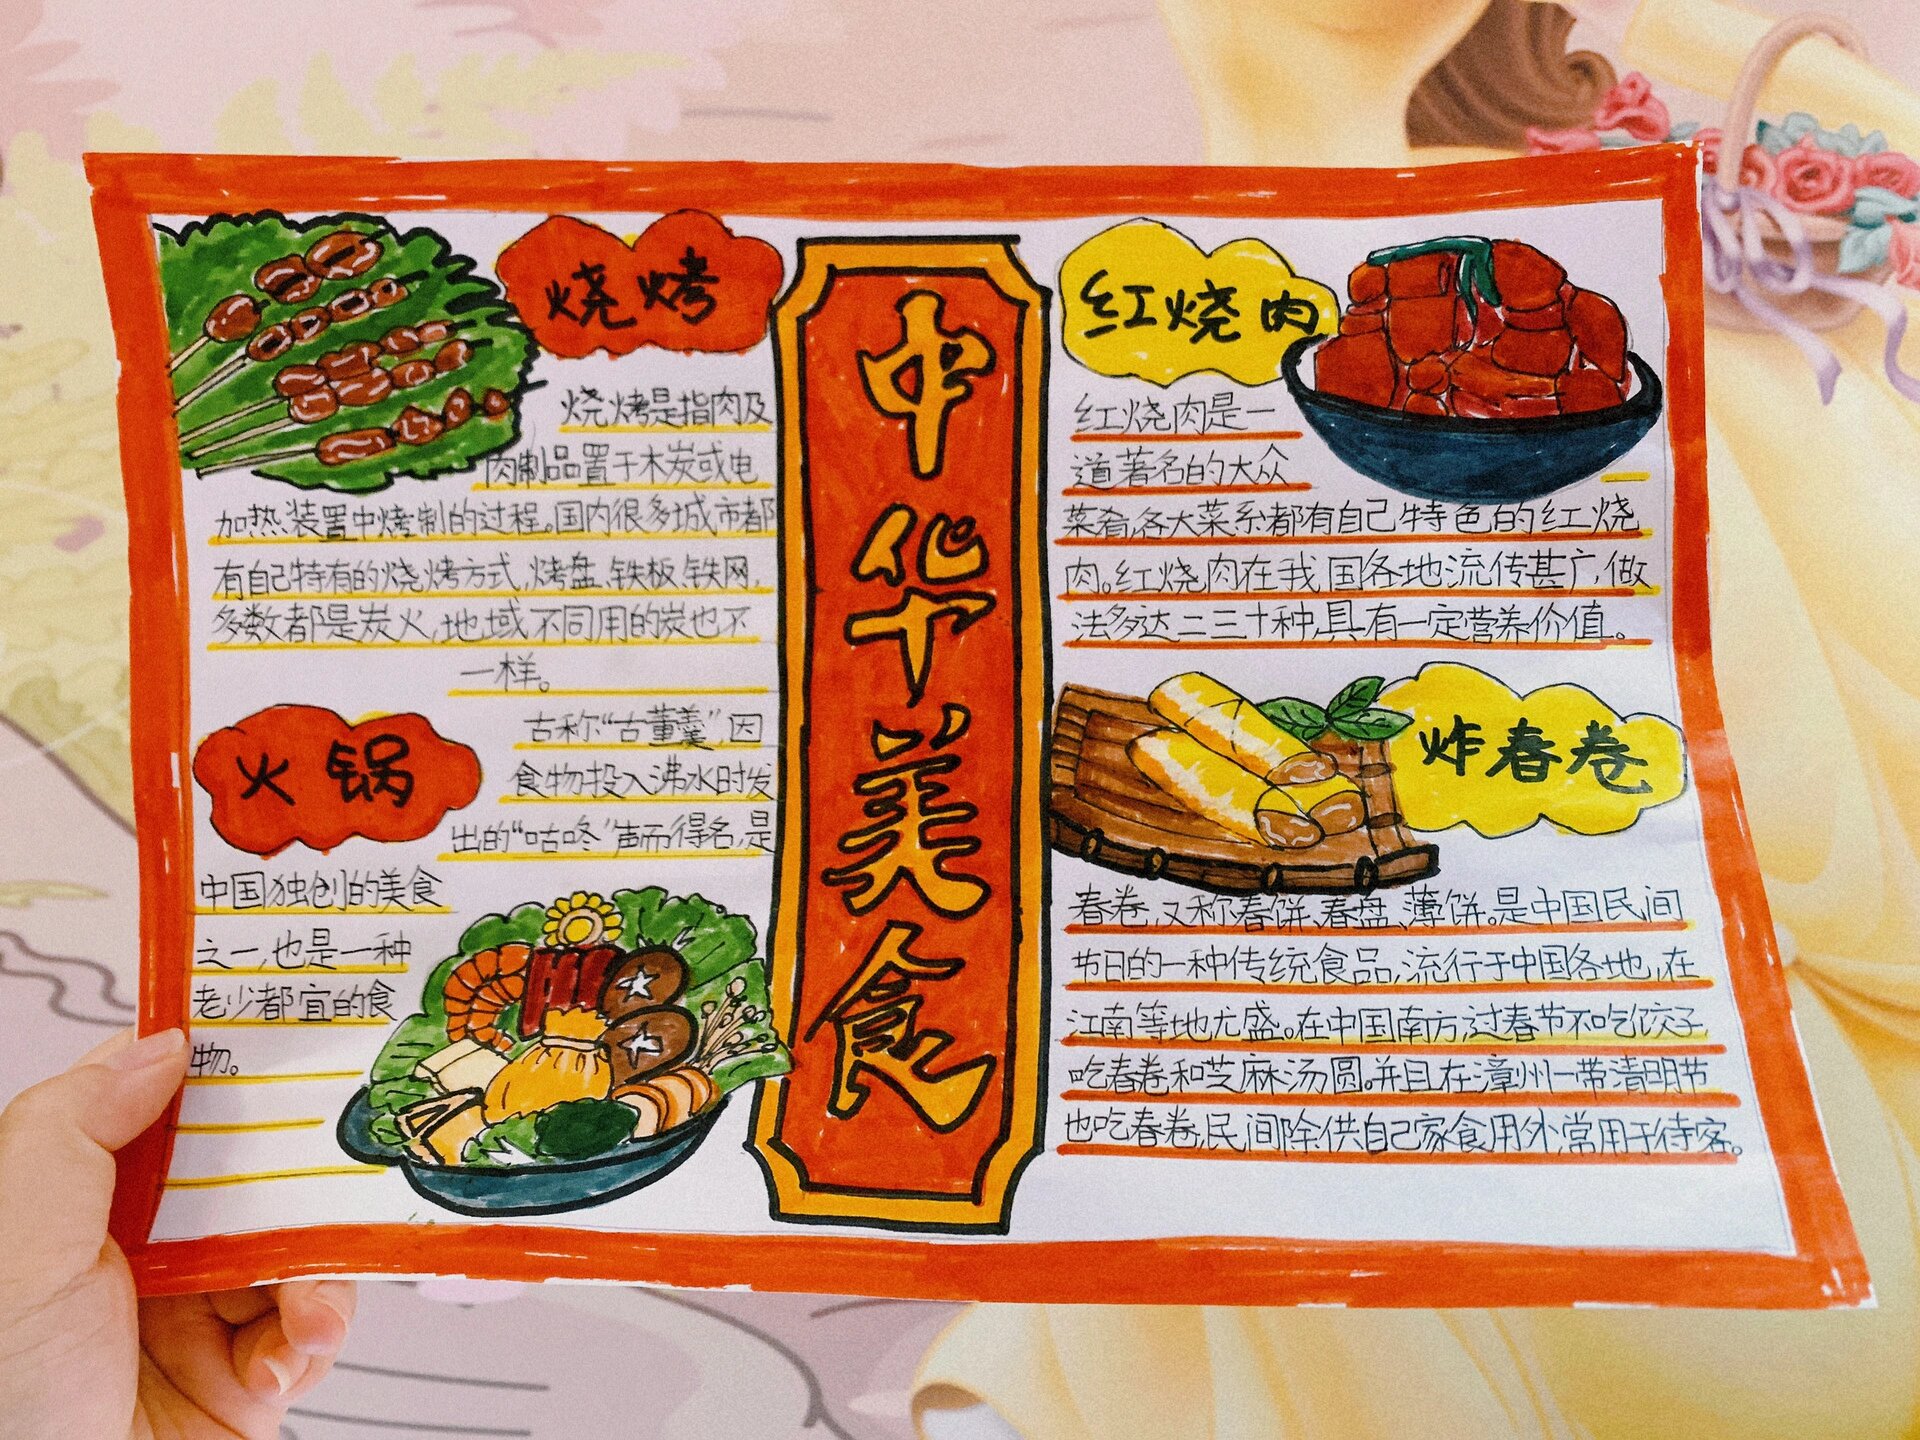 中华美食
烧烤
烧烤是指肉及
肉制品置于木炭或电
加热装置中烤制的过程。国内很多城市都
有自己特有的烧烤方式,烤盘、铁板、铁网,
多数都是炭火,地域不同用的炭也不
一样。
火锅
古称“古董羹”,因
食物投入沸水时发
出的“咕咚”声而得名,是
中国独创的美食
之一,也是一种
老少都宜的食
物。
红烧肉
红烧肉是一
道著名的大众
菜肴,各大菜系都有自己特色的红烧
肉。红烧肉在我国各地流传甚广,做
法多达二三十种,具有一定营养价值。
炸春卷
春卷,又称春饼、春盘、薄饼。是中国民间
节日的一种传统食品,流行于中国各地,在
江南等地尤盛。在中国南方,过春节不吃饺子,
吃春卷和芝麻汤圆。并且在漳州一带清明节
也吃春卷,民间除供自己家食用外,常用于待客。